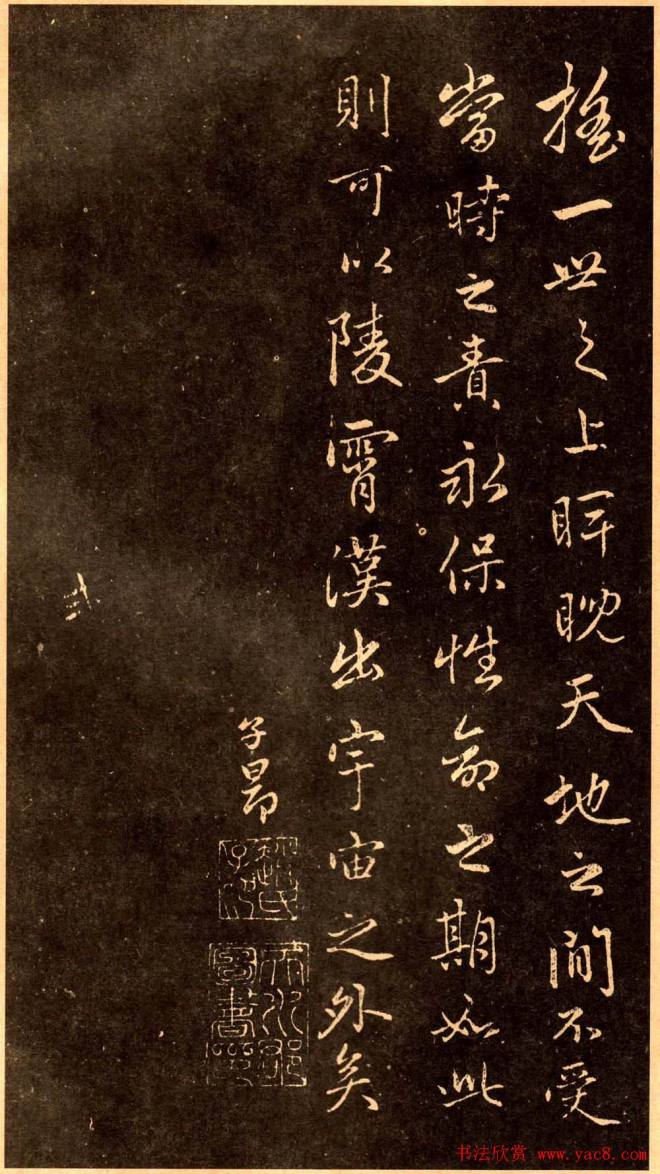 搖一世之上睥睨天地之間不受
當時之責永保性命之期如此
則可以陵霄漢出宇宙之外矣
子昂
趙氏子昂
天水郡圖書印
书法欣赏 www.yac8.com